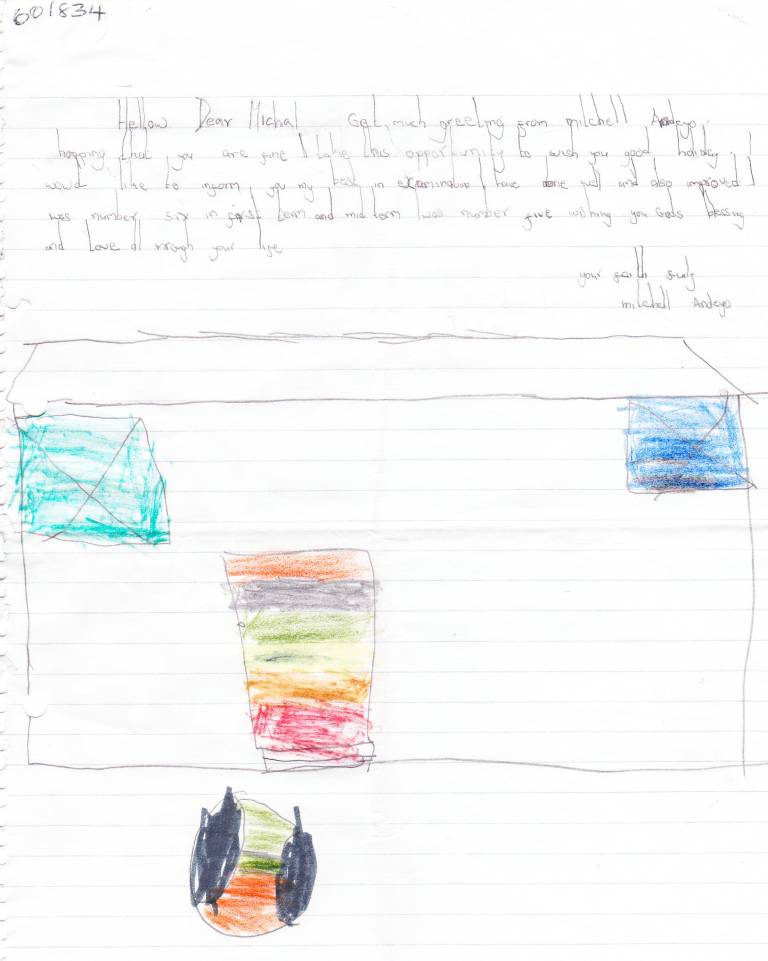 601834
Hellow Dear Michal Get much greeting from mitchell Andeyo.
hopping that you are fine I take this opportunity to wish you good holiday. I
would like to inform you my best in examination I have done well and also improved I
was number six in first term and mid term I was number five wishing you Gods blessing
and Love all through your life
your
mitchell Andeyo